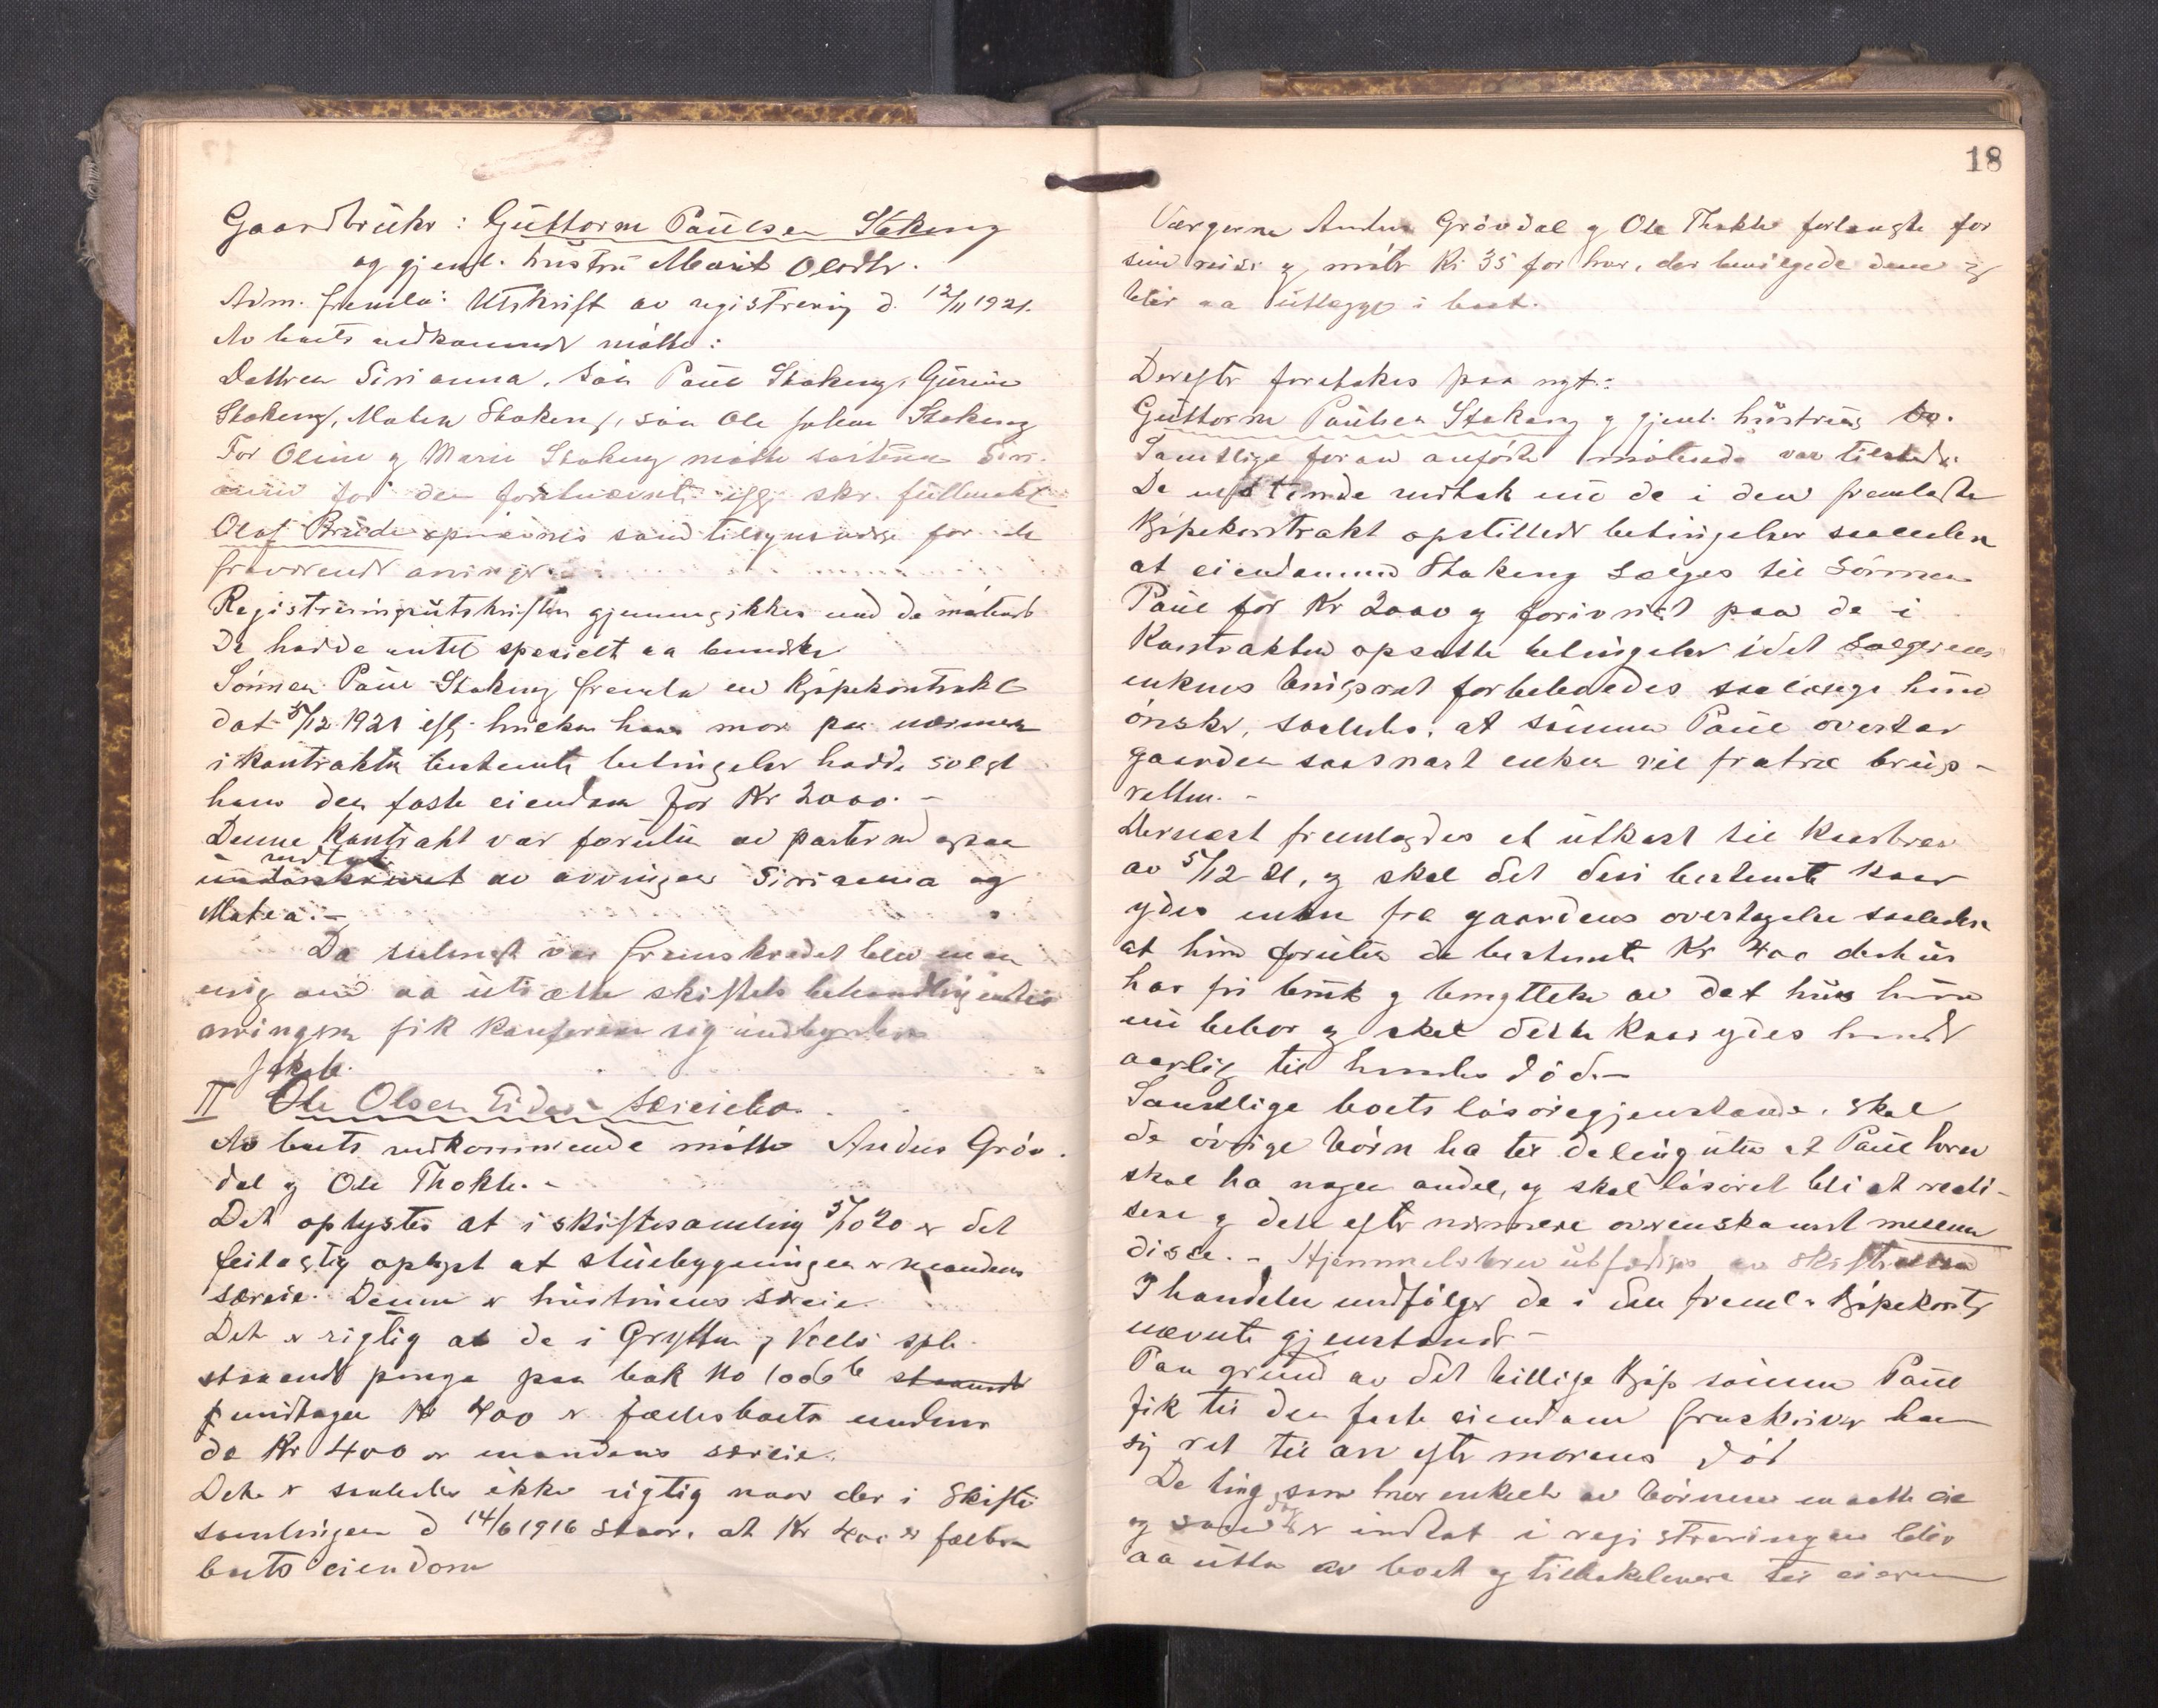 Gaardbruker: Guttorm Paulsen Stokeng
og gjenl. hustru Marit Olsdtr.
Adm. fremla: Utskrift av registrering d. 12/11 1921.
Av boets vedkommende møtte:
Datteren Sirianna, Søn Paul Stokeng, Gurine
Stokeng, Matea Stokeng, søn Ole Johan Stokeng
For Oline og Marie Stokeng møtte søsteren Siri-
anna for den førstnævnte iflg. skr. fullmakt
Olaf Brude som tilsynsverge for de
fraværende arvinger.
Registreringsutskriften gjennemgikkes med de møtende
De hadde intet specielt aa bemerke
Sønnen Paul Stokeng fremla en kjøpekontrakt
dat 5/12 1921 iflg. hvilken hans mor paa nærmere
i kontrakten bestemte betingelser hadde solgt
ham den faste eiendom for Kr 2000.-
Denne kontrakt var foruten av parterne ogsaa
vedtat
underskrevet av arvingen Sirianna og
Matea.-
Da saalangt var fremskredet blev man
enig om aa utsætte skiftets behandling indtil
arvingerne fik konferere sig indbyrdes
II Ole Olsen Eides særeiebo.
Av boets vedkommende møtte Anders Grøv-
dal og Ole Thokle.-
Det oplystes at i skiftesamling 5/10 20 er det
feilagtig oplyst at stuebygningen er mandens
særeie. Denne er hustruens særeie.
Det er rigtig at de i Grytten og Veø's spb.
staaende penge paa bok No 1006 b staaende
undtagen Kr 400 er fællesboets medens
de Kr 400 er mandens særeie.
Det er saaledes ikke rigtig naar der i Skifte
samlingen d 14/6 1916 staar, at Kr 400 er fælles
boets eiendom
18
Værgerne Anders Grøvdal og Ole Thokle forlangte for
sine reiser og møter Kr 35 for hver, der bevilgedes dem og
blir aa utlægge i boet.
Derefter foretakes paa nyt:
Guttorm Paulsen Stokeng og gjenl. hustrus bo.
Samtlige foran anførte møtende var tilstede.
De møtende vedtok nu de i den fremlagte
Kjøpekontrakt opstillede betingelser saaledes
at eiendommen Stokeng sælges til Sønnen
Paul for Kr 2000 og forøvrigt paa de i
Kontrakten opsatte betingelser idet sælgeren
enkens bruksret forbeholdes saalænge hun
ønsker, saaledes, at sønnen Paul overtar
gaarden saasnart enken vil fratræ bruks-
retten.-
Dernæst fremlagdes et utkast til Kaarbrev
av 5/12 21, og skal det deri bestemte Kaar
ydes enken fra gaardens overtagelse saaledes
at hun foruten de bestemte Kr 400 desuten
har fri bruk og benyttelse av det hus hun
nu bebor og skal dette Kaar ydes hende
aarlig til hendes død.-
Samtlige boets løsøregjenstande, skal
de øvrige børn ha til deling uten at Paul herav
skal ha nogen andel, og skal løsøret bli at reali-
sere og dele efter nærmere overenskomst mellem
disse.- Hjemmelsbrev utfærdiges av Skifteretten
I handelen medfølger de i den freml. Kjøpekontr.
nævnte gjenstande-
Paa grund av det billige Kjøp sønnen Paul
fik til den faste eiendom fraskriver han
sig ret til arv efter morens død
De ting som hver enkelt av børnene maatte eie
og som er indtat i registreringen blir
aa utta av boet og tilbakelevere til eieren